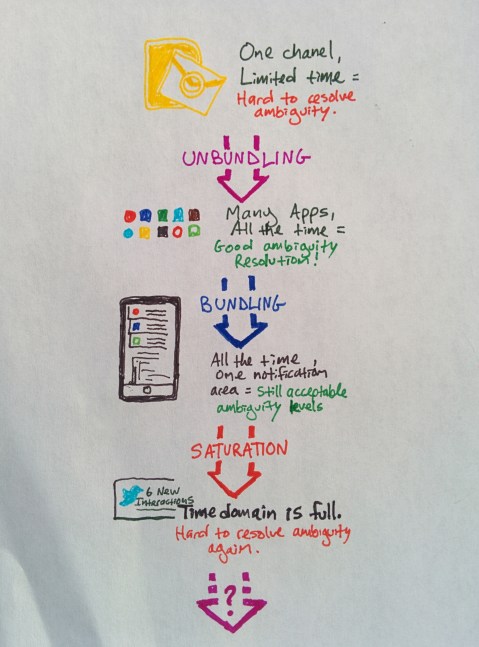 One chanel,
Limited time =
Hard to resolve
ambiguity.
UNBUNDLING
Many Apps,
All the time =
Good ambiguity
Resolution!
BUNDLING
All the time,
one notification
area = Still acceptable
ambiguity levels
SATURATION
6 New
Interactions
Time domain is full.
Hard to resolve ambiguity
again.
?